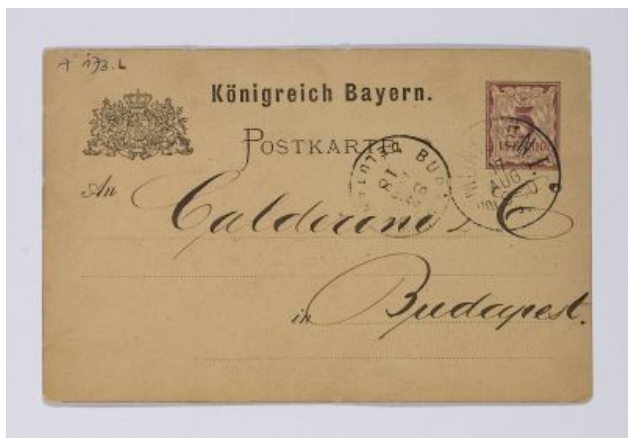 173.L
Königreich Bayern.
5
PFENNIG
POSTKARTE
17
AUG
BUD
18
An
Calderoni & C
in Budapest.